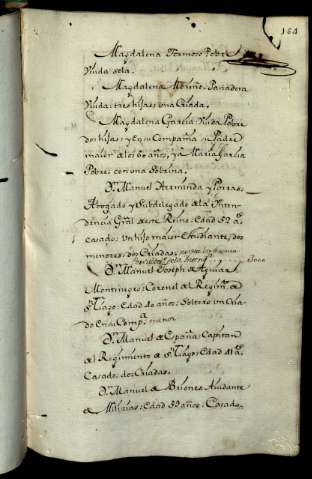 164
Magdalena Ramos Pobre
Viuda sola.
Magdalena Moreno Panadera
Viuda: tres hijas: una Criada.
Magdalena Garcia Viuda Pobre
dos hijas; y en su Compañia su Padre
maior de los 60 años, y a Maria Garcia
Pobre, con una Sobrina.
Dn. Manuel Hermida y Porras,
Abogado y Subdelegado de la Inten-
dencia Gral de este Reino: Edad 52 as
Casado: Un hijo maior Estudiante, dos
menores: dos Criadas.
Dn. Manuel Joseph de Aguiar
Montenegro: Coronel del Regimto. de
Stiago: Edad 40 años: Soltero: un Cria-
do en su Compa. menor
Dn. Manuel de España Capitan
del Regimiento de Stiago: Edad 41 as
Casado: dos Criadas.
Dn. Manuel de Briones Aiudante
de Milicias: Edad 59 años: Casado